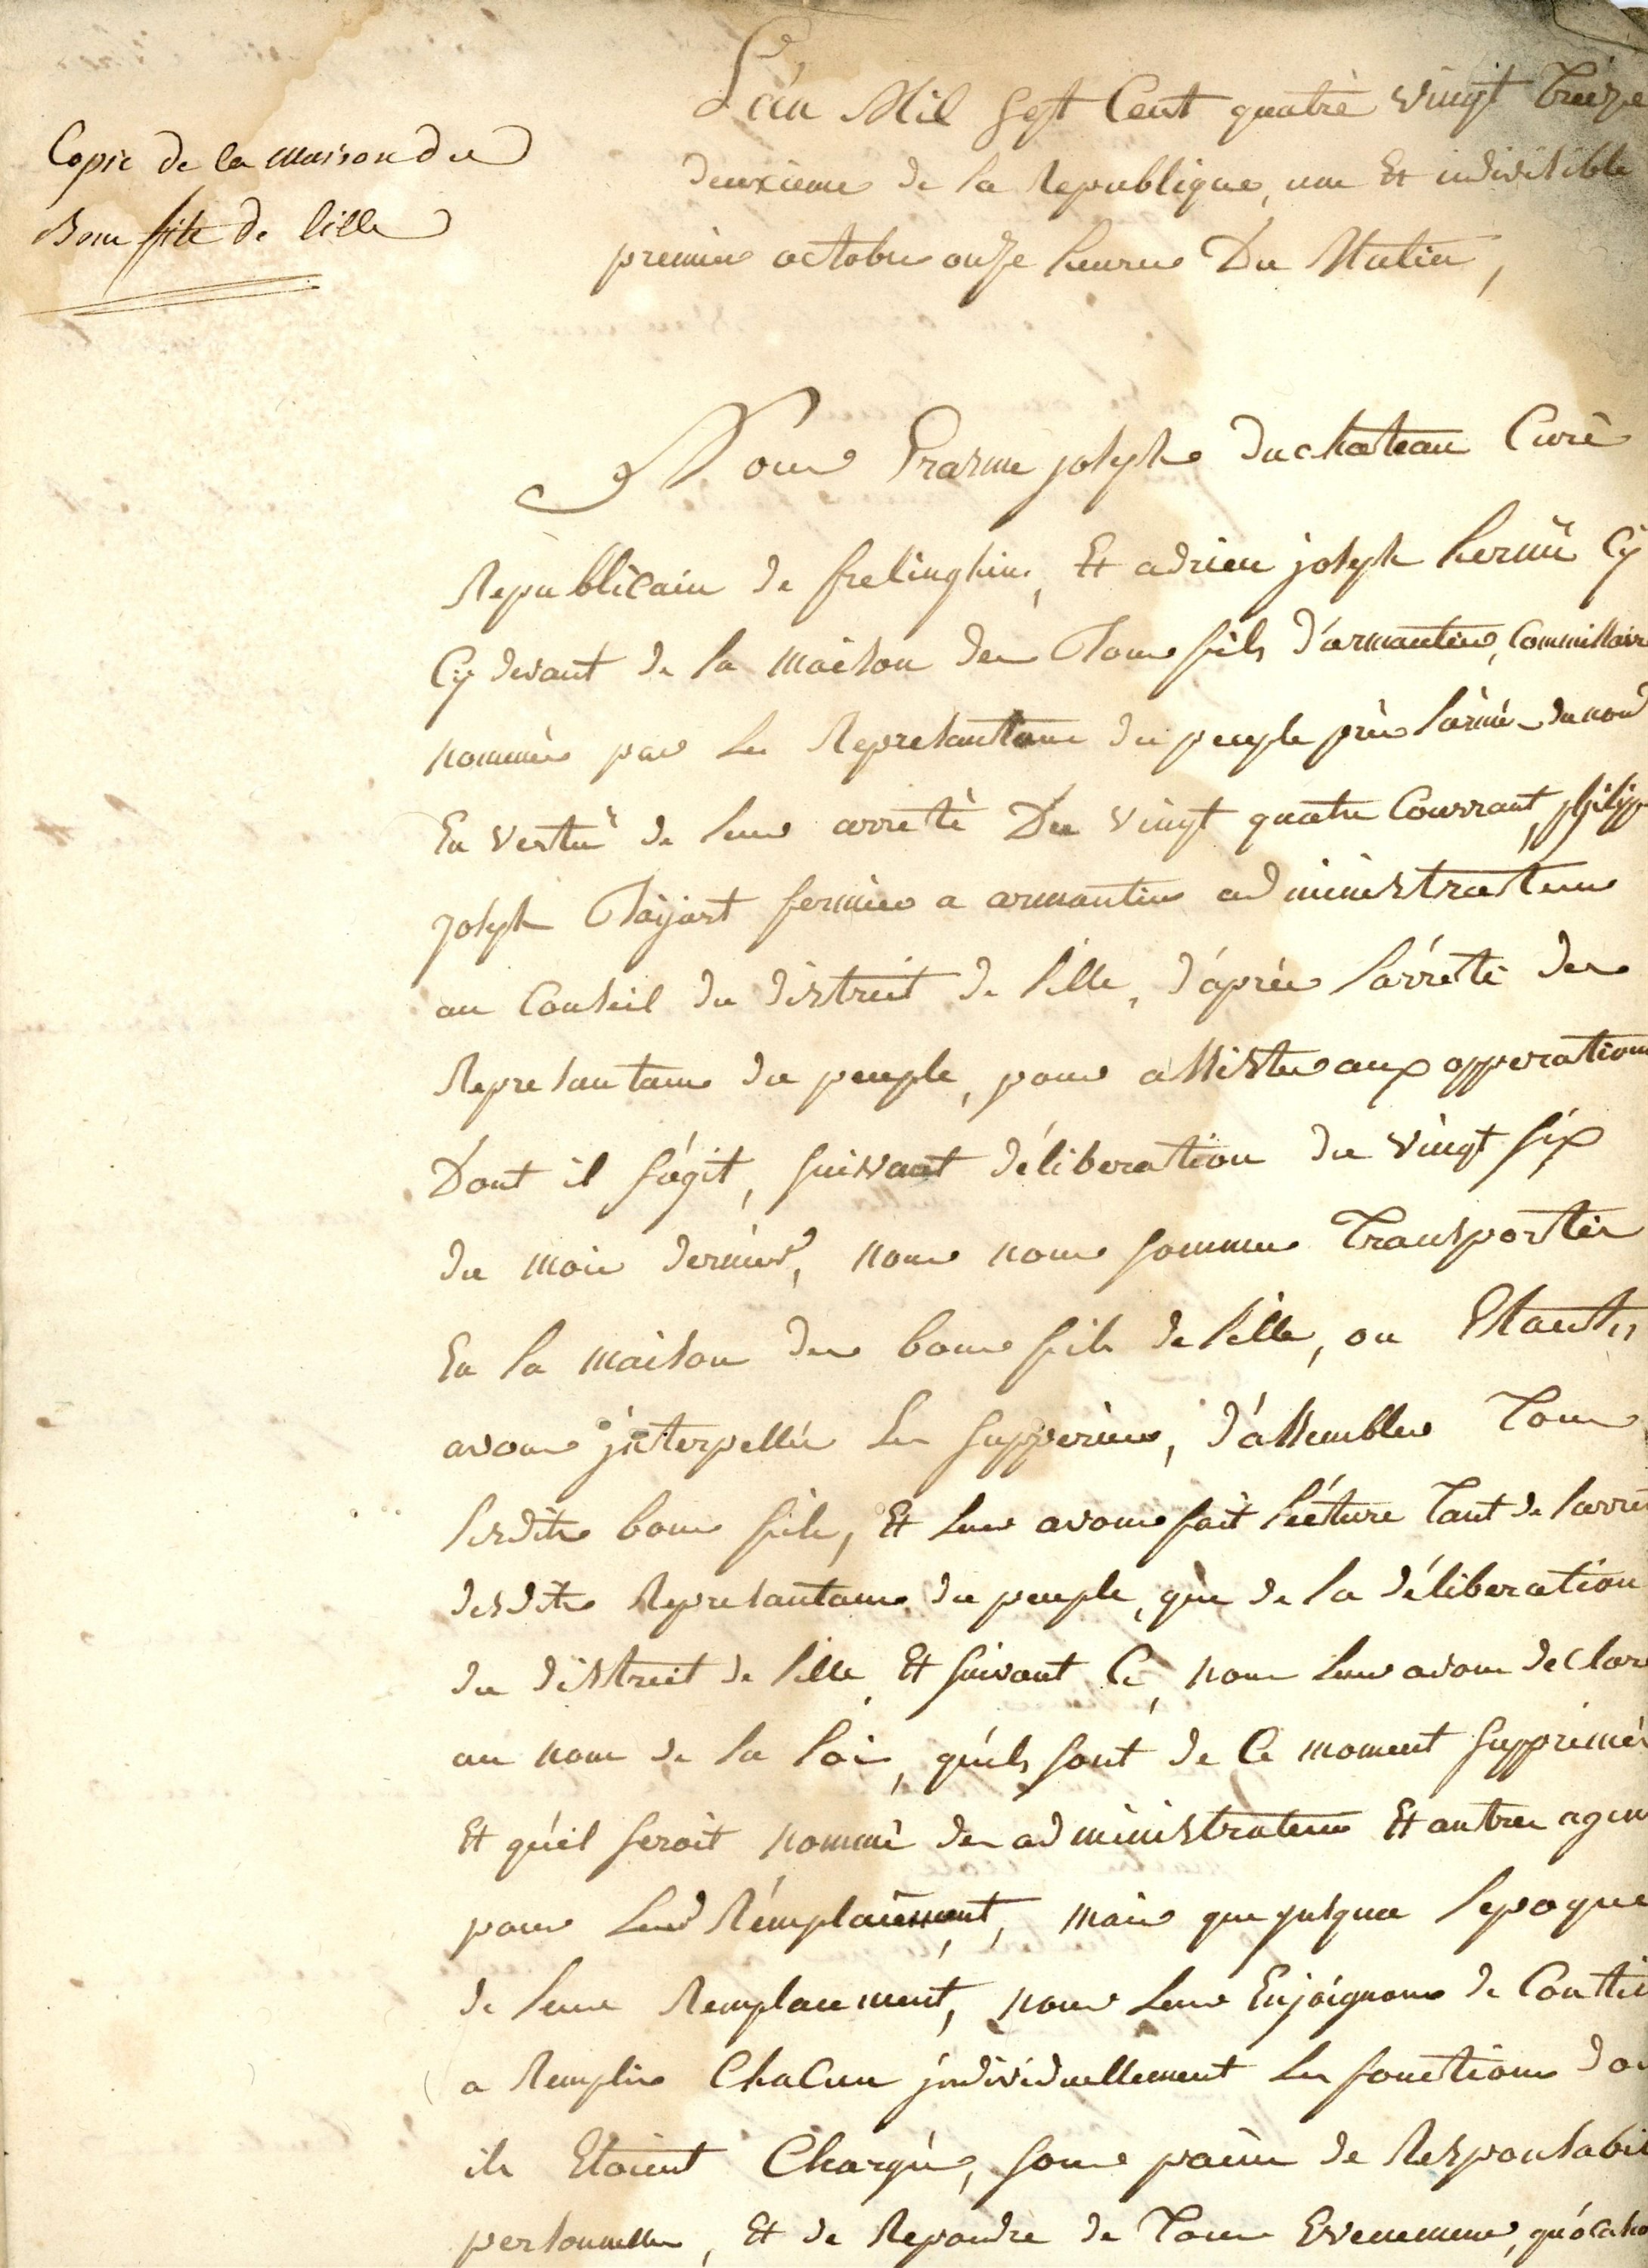 Copie de la maison des
Bons fils de lille
L'an Mil Sept Cent quatre vingt Treize
deuxieme de la Republique, une Et indivisible
premier octobre onze heures Du Matin,
Nous joseph duchateau Curé
Republicain de frelinghin, Et adrien joseph
Cÿ devant de la maison des Bons fils d'armantiers, Commissaire
nommés par les Representans du peuple près l'armée du nord
En vertu de leur arreté Du vingt quatre Courrant, philipp
joseph fermier a armantiers administrateur
au Conseil du district de lille, d'après l'arrèté des
Representans du peuple, pour assister aux opperations
Dont il s'agit, suivant déliberation du vingt six
du mois dernier, nous nous sommes Transportés
En la maison des bons fils de lille, ou Etants
avons interpellés les supperieurs, d'assembler Tous
lesdits bons fils, Et leur avons fait lécture Tant de l'arret
desdits Representans du peuple, que de la déliberation
du district de lille Et suivant Ce, nous leur avons declaré
au nom de la loi, qu'ils sont de Ce moment supprimés
Et qu'il seroit nommé des administrateurs Et autres agen
pour leur Remplacement, mais que jusqu'a l'epoque
de leur Remplacement, nous leur Enjoignons de Conti
a Remplir ChaCun individuellement les fonctions do
ils Etoient Chargés, sous paine de Responsabil
personnelle, Et de Repondre de Tous Evenemens, qu'ocasio